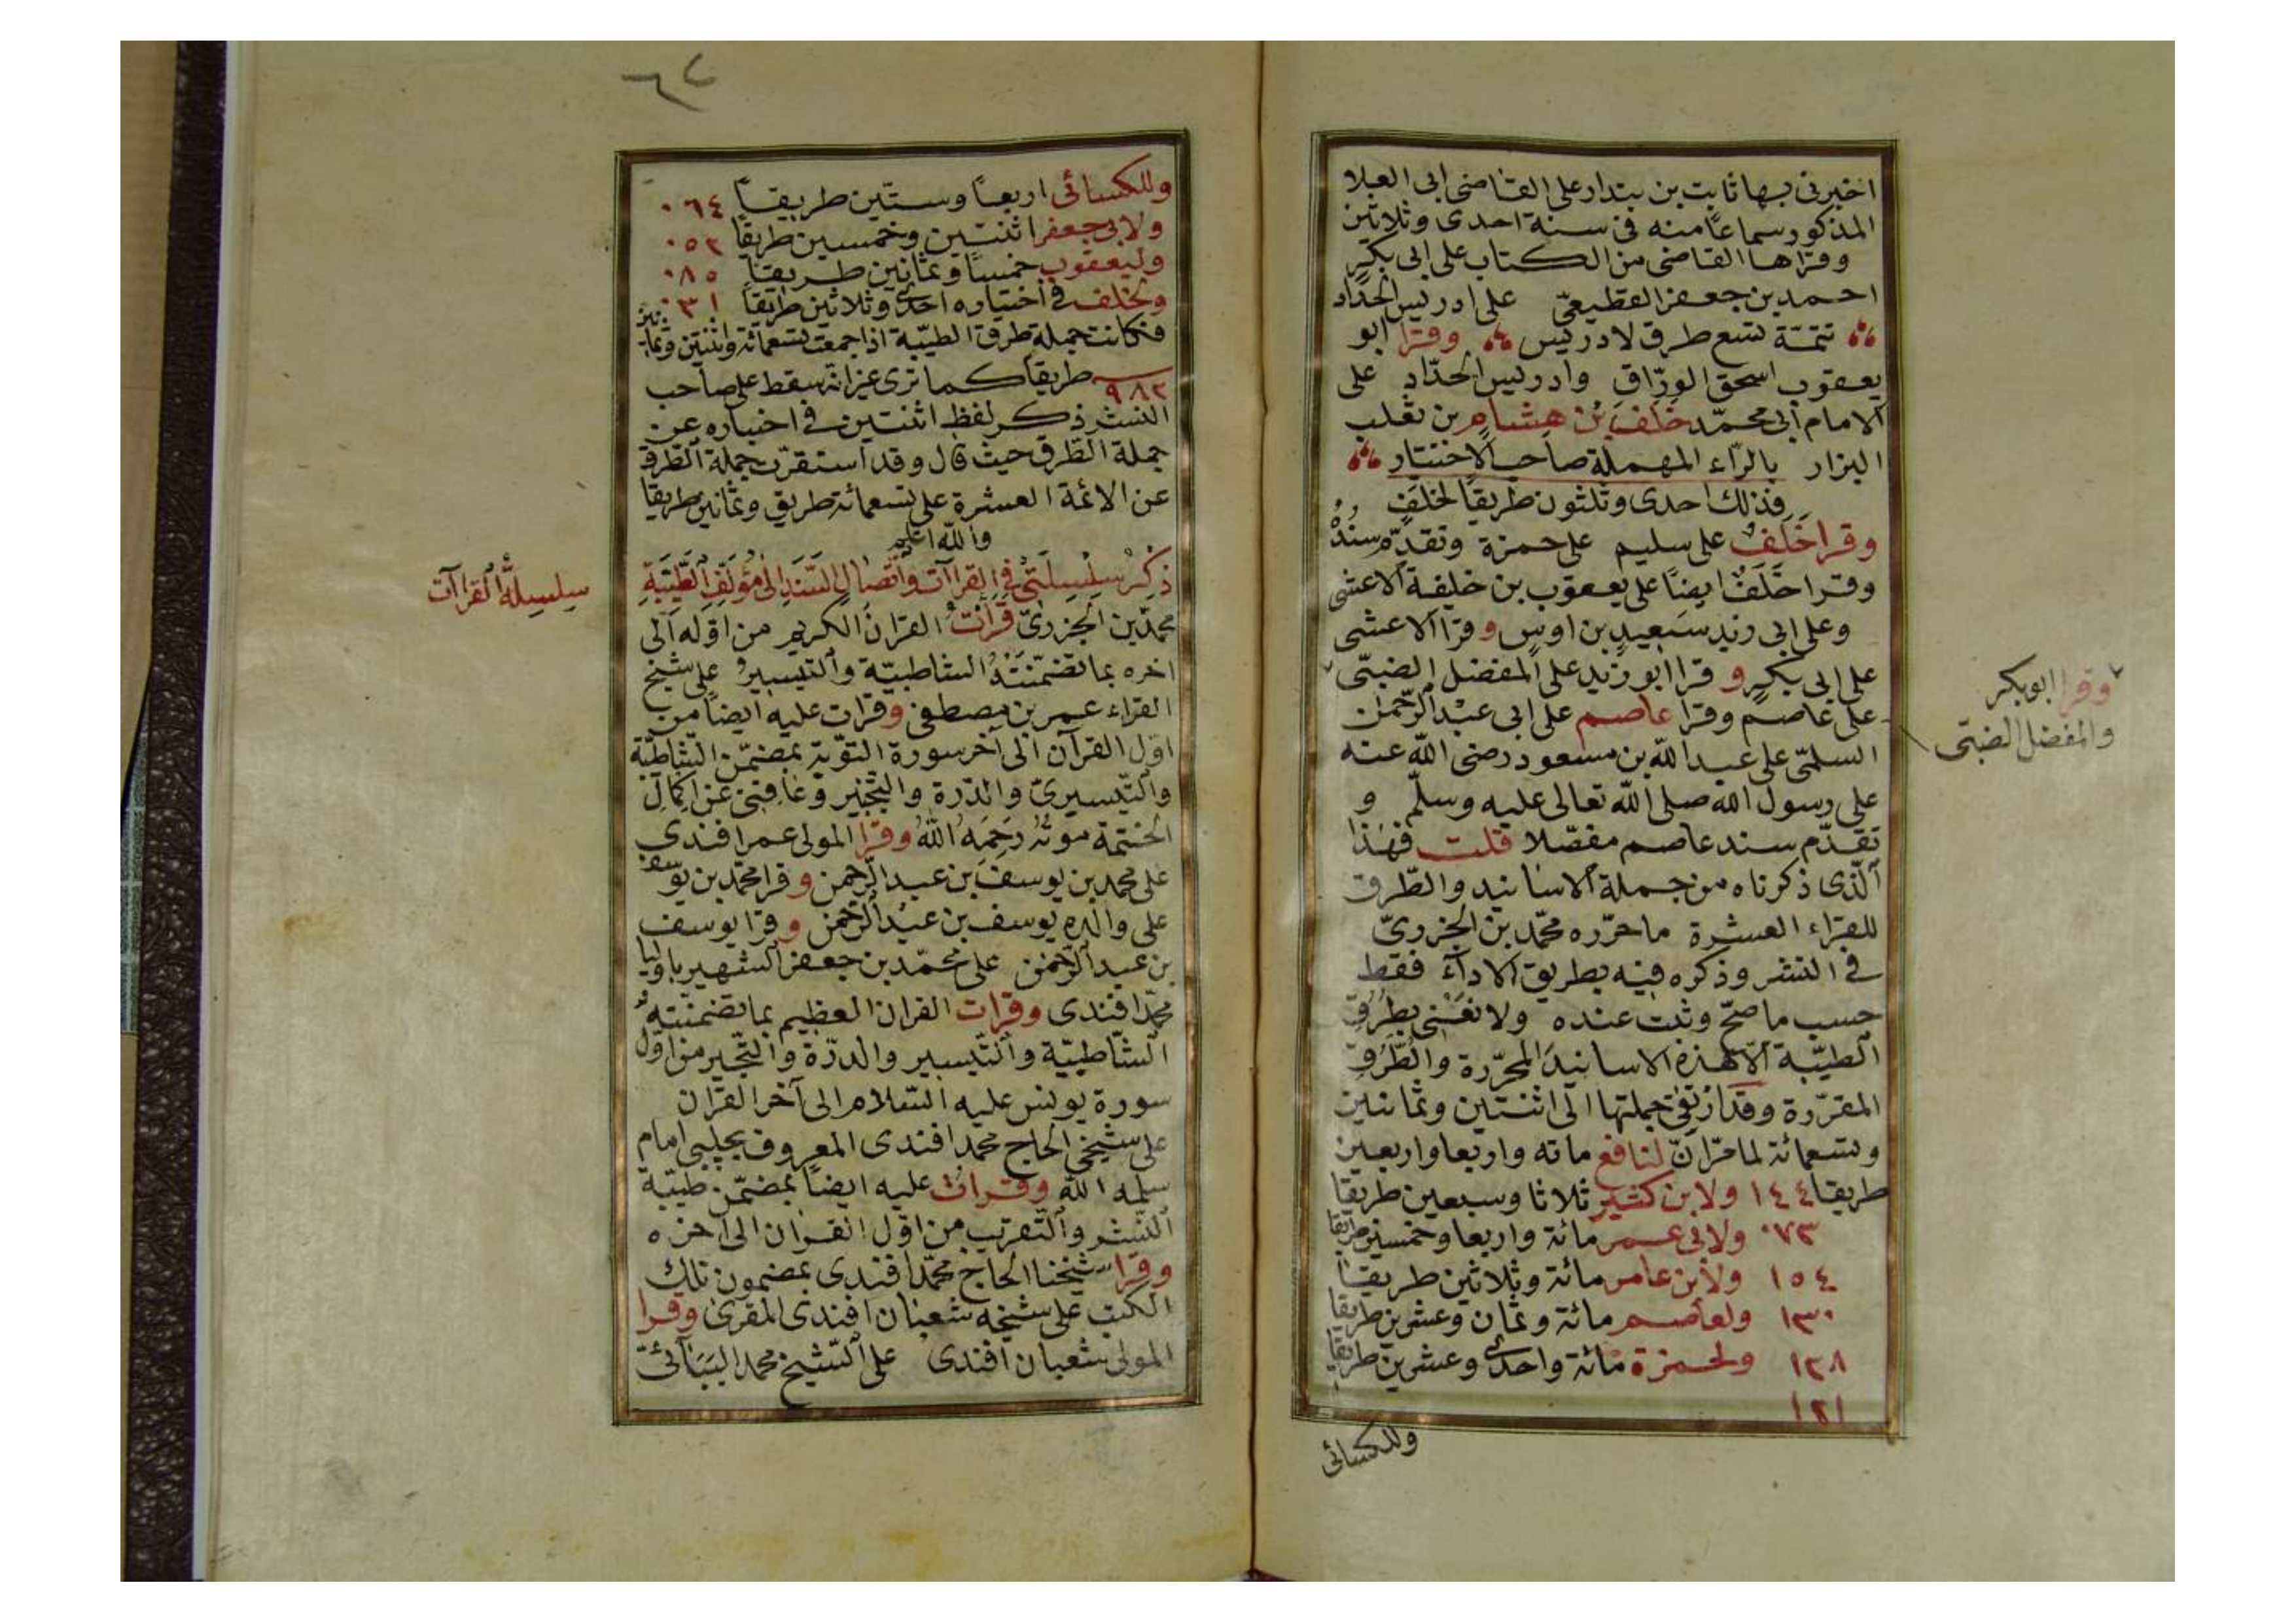 اخبرنى بها ثابت بن بندار على القاضى ابى العلا
المذكور سماعًا منه فى سنة احدى وثلاثين
وقراها القاضى من الكتاب على ابى بكرٍ
احمد بن جعفر القطيعىّ على ادريس الحدّاد
تتمّة تسع طرق لادريس وقرا ابو
يعقوب اسحق الورّاق وادريس الحدّاد على
الامام ابى محمّد خَلَف بن هشام بن ثعلب
البزار بالرّاء المهملة صاحب الاختيار
فذلك احدى وثلثون طريقًا لخلفٍ
وقرا خَلَفٌ على سليم على حمزة وتقدّم سندُهُ
وقرا خَلَفٌ ايضًا على يعقوب بن خليفة الاعشى
وعلى ابى زيد سَعِيدِ بن اوسٍ وقرا الاعشى
على ابى بكرٍ و قرا ابو زيد على المفضل الضبىّ
وقرا ابوبكر
والمفضل الضبىّ
على عاصم وقرا عاصم على ابى عبْد الرّحمن
السلمىّ على عبد اللّه بن مسعود رضى اللّه عنه
على رسول اللّه صلى اللّه تعالى عليه وسلّم و
تقدّم سند عاصم مفصّلا قلت فهذا
الّذى ذكرناه من جملة الاسانيد والطّرق
للقرّاء العشرة ما حرّره محمّد بن الجزرىّ
فى النشر وذكره فيه بطريق الاداء فقط
حسب ما صحّ وثبت عنده ولا نعْنى بطُرُقِ
الطيّبة الّا هذه الاسانيدَ المحرّرة والطُّرُقِ
المقرّرة وقد ارتقى جملتها الى اثنتين وثمانين
وتسعمائة لما مرّ انّ لنافع مائه واربعا واربعين
طريقا ١٤٤ ولابن كثير ثلاثا وسبعين طريقا
٠٧٣ ولابى عمر مائة واربعا وخمسين طريقا
١٥٤ ولابن عامر مائة وثلاثين طريقا
١٣٠ ولعاصم مائة وثمان وعشرين طريقا
١٢٨ ولحمزة مائة واحدى وعشرين طريقا
١٢١
وللكسائى
٦٢
وللكسائى اربعًا وستّين طريقًا ٠٦٤
ولابى جعفر اثنتين وخمسين طريقًا ٠٥٢
وليعقوب خمسًا وثمانين طريقًا ٠٨٥
ولخلف فى اختياره احدى وثلاثين طريقًا ٠٣١
فكانت جملة طرق الطيّبة اذا جمعت تسعمائة واثنتين وثمانين
٩٨٢ طريقًا كما ترى غير انّه سقط على صاحب
النشر ذكر لفظ اثنتين فى اخباره عن
جملة الطّرق حيث قال وقد استقرّت جملة الطّرق
عن الائمّة العشرة على تسعمائة طريق وثمانين طريقا
واللّه اعلم
ذِكْرُ سِلْسِلَتِى فِى القراآت واتّصالِ السَّنَدِ الى مُؤلّفِ الطّيّبَةِ
سلسلة القراآت
محمّد بن الجزرىّ قَرأتُ القرانَ الكريم من اوّله الى
اخره بما تَضَمَّنَتْهُ الشاطبيّة والتيسيرُ على شيخ
القراء عمر بن مصطفى وقرات عليه ايضًا من
اوّل القرآن الى آخر سورة التوبة بمضمّن الشّاطبيّة
والتّيسيرىّ والدّرة والتحْبير وعَافنى عن اكمالِ
الختمة موتُه رَحِمَهُ اللّهُ وقرا المولى عمر افندى
على محمد بن يوسف بن عبد الرّحمن وقرا محمّد بن يوسف
على والده يوسف بن عبد الرّحمن وقرا يوسف
بن عبد الرّحمن على محمّد بن جعفر الشهير باوليا
محمّد افندى وقرات القران العظيم بما تضمنّتهُ
الشّاطبيّة والتّيسير والدرّة والتّحبير من اوّل
سورة يونس عليه السّلام الى آخر القران
على شيخى الحاج محمد افندى المعروف بچلبى امام
سلمه اللّه وقرات عليه ايضًا بمضمّن طيّبة
النّشر والتّقريب من اوّل القران الى آخره
وقرا شيخنا الحاج محمّد افندى بمضمون تلك
الكتب على شيخه شعبان افندى المقرئ وقرا
المولى شعبان افندى على الشّيخ محمد